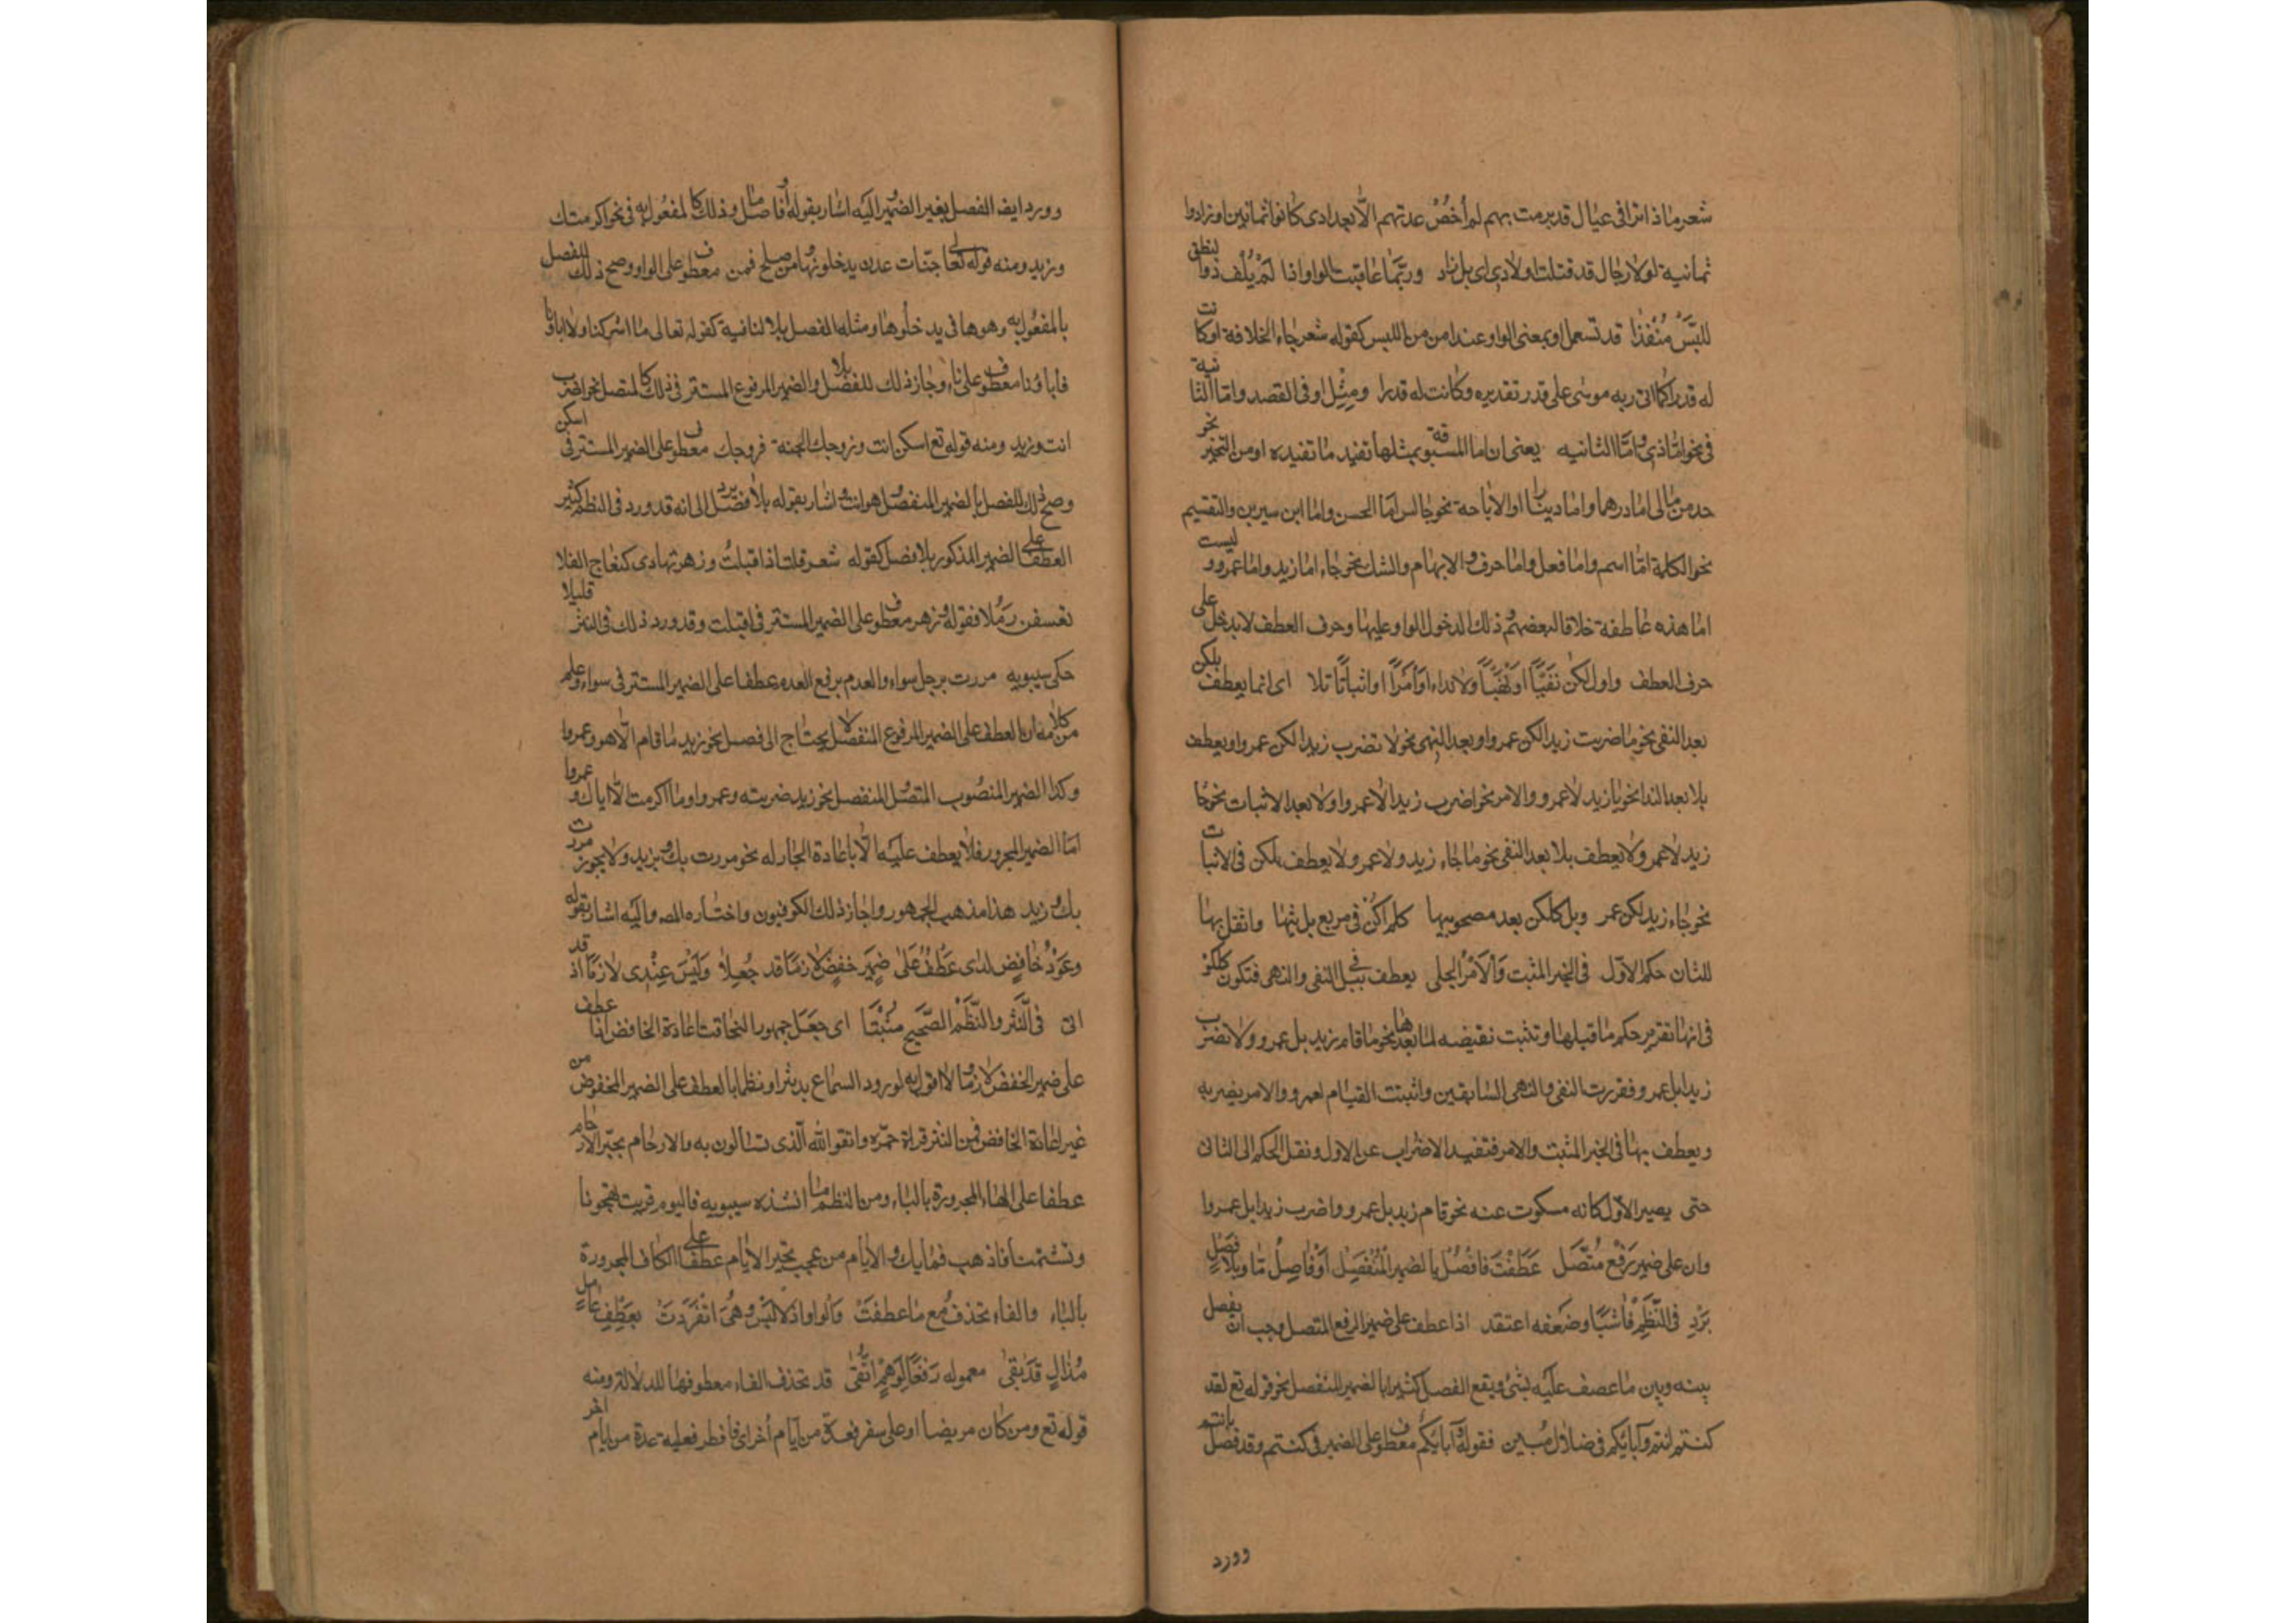 شعر ماذا ترا فى عيال قد برمت بهم لم أخصُ عدتهم الّا بعدادى كانوا ثمانين او زادوا
ثمانية لولا رجال قد قتلت اولادى اى بل زاد وربّما عاقبت الواو اذا لَمْ يُلف ذوا لنطق
للبّسَ مُنْفَذا قد تسعمل او بمعنى الواو عند امن من اللبس كقوله شعر جاء الخلافة او كانت
له قدرا كما اتى ربه موسى على قدر تقديره وكانت له قدرا ومِثِل او فى القصد واما الثانية
فى نحو امّا ذى وامّا الثانيه يعنى ان اما المسبوقة بمثلها تفيد ما تفيده او من التخير نحو
خد من مالى اما درهما واما دينارا او الاباحة نحو جالس اما الحسن واما ابن سيرين والتقسيم
نحو الكلمة امّا اسم واما فعل واما حرف و الابهام والشك نحو جاء اما زيد واما عمرو و ليست
امّا هذه عاطفة خلافا لبعضهم و ذلك لدخول الواو عليها وحرف العطف لا يدخل على
حرف العطف واول لكن نَفَيًّا اوْ نَهْيًّا ولا نداء اوْ أمَرًا او اثباتًا تلا اى انما يعطف بلكن
بعد النفى نحو ما ضربت زيدا لكن عمروا وبعد النهى نحو لا تضرب زيدا لكن عمروا ويعطف
بلا بعد الندا نحو يا زيد لا عمرو والامر نحو اضرب زيدا لا عمروا ولا بعد الاثبات نحو جا
زيد لا عمرو ولا يعطف بلا بعد النفى نحو ما جاء زيد ولا عمرو ولا يعطف بلكن فى الاثبات
نحو جاء زيد لكن عمر وبل كلكن بعد مصحوبيها كلم اكن فى مربع بل تيها وانقل بها
للثان حكم الاوّل فى الخبر المثبت وَالأمْرُ الجلى يعطف ببل فى النفى والنهى فتكون كلكن
فى انها تقرير حكم ما قبلها وتثبت نقيضه لما بعدها نحو ما قام زيد بل عمرو ولا تضرب
زيدا بل عمرو فقررت النفى والنهى السابقين واثبتت القيام لعمرو والامر بضربه
ويعطف بها فى الخبر المثبت والامر فتفيد الاضراب عن الاول ونقل الحكم الى الثانى
حتى يصير الاوّل كانه مسكوت عنه نحو قام زيد بل عمرو واضرب زيدا بل عمروا
وان على ضمير رَفْع مُتَّصَل عَطَفْتَ فافُصُل بالضمير المُنْفَصِل أوْ فاصِل مّا وبلا فصَلٍ
يَرِد فى النَّظَمِ فاُشيًا وضَعَفه اعتقد اذا عطف على ضمير الرفع المتصل وجب ان يفصل
بينه وبين ما عصف عليه بشئ ويقع الفصل كثيرا بالضمير المنفصل نحو قوله تع لقد
كنتم انتم وآبائكم فى ضلال مبين فقوله وآبائكم معطوف على الضمير فى كنتم وقد فصل بانتم
وورد
وورد ايضا الفصل بغير الضمير واليه اشار بقوله أو فاصل ما وذلك كالمفعول به فى نحو اكرمتك
وزيد ومنه قوله تعالى جنّات عدن يدخلونها ومن صلح فمن معطوف على الواو وصح ذلك للفصل
بالمفعول به وهو ها فى يدخلونها ومثله الفصل بلا النافية كقوله تعالى ما اشركنا ولا اباؤنا
فاباؤنا معطوف على نا وجاز ذلك للفصل بلا والضمير المرفوع المستتر فى ذلك كالمتصل نحو اضرب
انت وزيد ومنه قوله تع اسكن انت وزوجك الجنة فزوجك معطوف على الضمير المستتر فى اسكن
وصح ذلك للفصل بالضمير المنفصل وهو انت واشار بقوله وبلا فصل يرد الى انه قد ورد فى النظم كثير
العطف على الضمير المذكور بلا فصل كقوله شعر قلت اذا قبلتُ وزهر تهادى كنعاج الفلا
تعسفن رَمُلا فقوله وزهر معطوف على الضمير المستتر فى اقبلت وقد ورد ذلك فى النثر قليلا
حكى سيبويه مررت برجل سواء والعدم برفع العدم عطفا على الضمير المستتر فى سواء وعلم
من كلامه ان العطف على الضمير المرفوع المنفصل لا يحتاج الى فصل نحو زيد ما قام الّا هو وعمروا
وكذا الضمير المنصوب المتصّل المنفصل نحو زيد ضربته وعمروا وما اكرمت الّا اياك و عمروا
امّا الضمير المجرور فلا يعطف عليه الّا باعادة الجار له نحو مررت بك وبزيد ولا يجوز مررت
بك وزيد هذا مذهب الجمهور واجاز ذلك الكوفيون واختاره المص واليه اشار بقوله
وعَوْدُ خافِضٍ لدى عَطْفٍ عَلى ضمَير خفضٍ لازمًا قد جُعِلا وَلَيْسَ عِنْدِى لازمًا اذ قد
اتى فى النَّثَر والنّظَمْ الصَّحيح مثبتا اى جعَل جمهور النحاة اعادة الخافض اذا عطف
على ضمير الخفض لازما ولا اقول به لورود السماع به نثرا ونظما بالعطف على الضمير المخفوض من
غير اعادة الخافض فمن النثر قراة حمزه واتقوا الله الّذى تسألون به والارحام بجبّر الارحام
عطفا على الهاء المجرورة بالباء ومن النظم ما انشده سيبويه فاليوم قربت تهجونا
وتشتمنا فاذهب فما بك والايام من عجب بجّر الايام عطفا على الكاف المجرورة
بالباء والفاء تحذف مع ما عطفتَ وَالواو اذ لا لبْسَ وهىَ انْفَرَدَتَ بعَطْفِ عامل
مُذالٍ قدْ بقىٰ معموله رَفعًا لوَهْمٍ اتُّقىٰ قد تحذف الفاء معطوفها للدلالة ومنه
قوله تع ومن كان مريضا او على سفر فعدة من أيام أخر اى فافطر فعليه عدة من ايام اخر